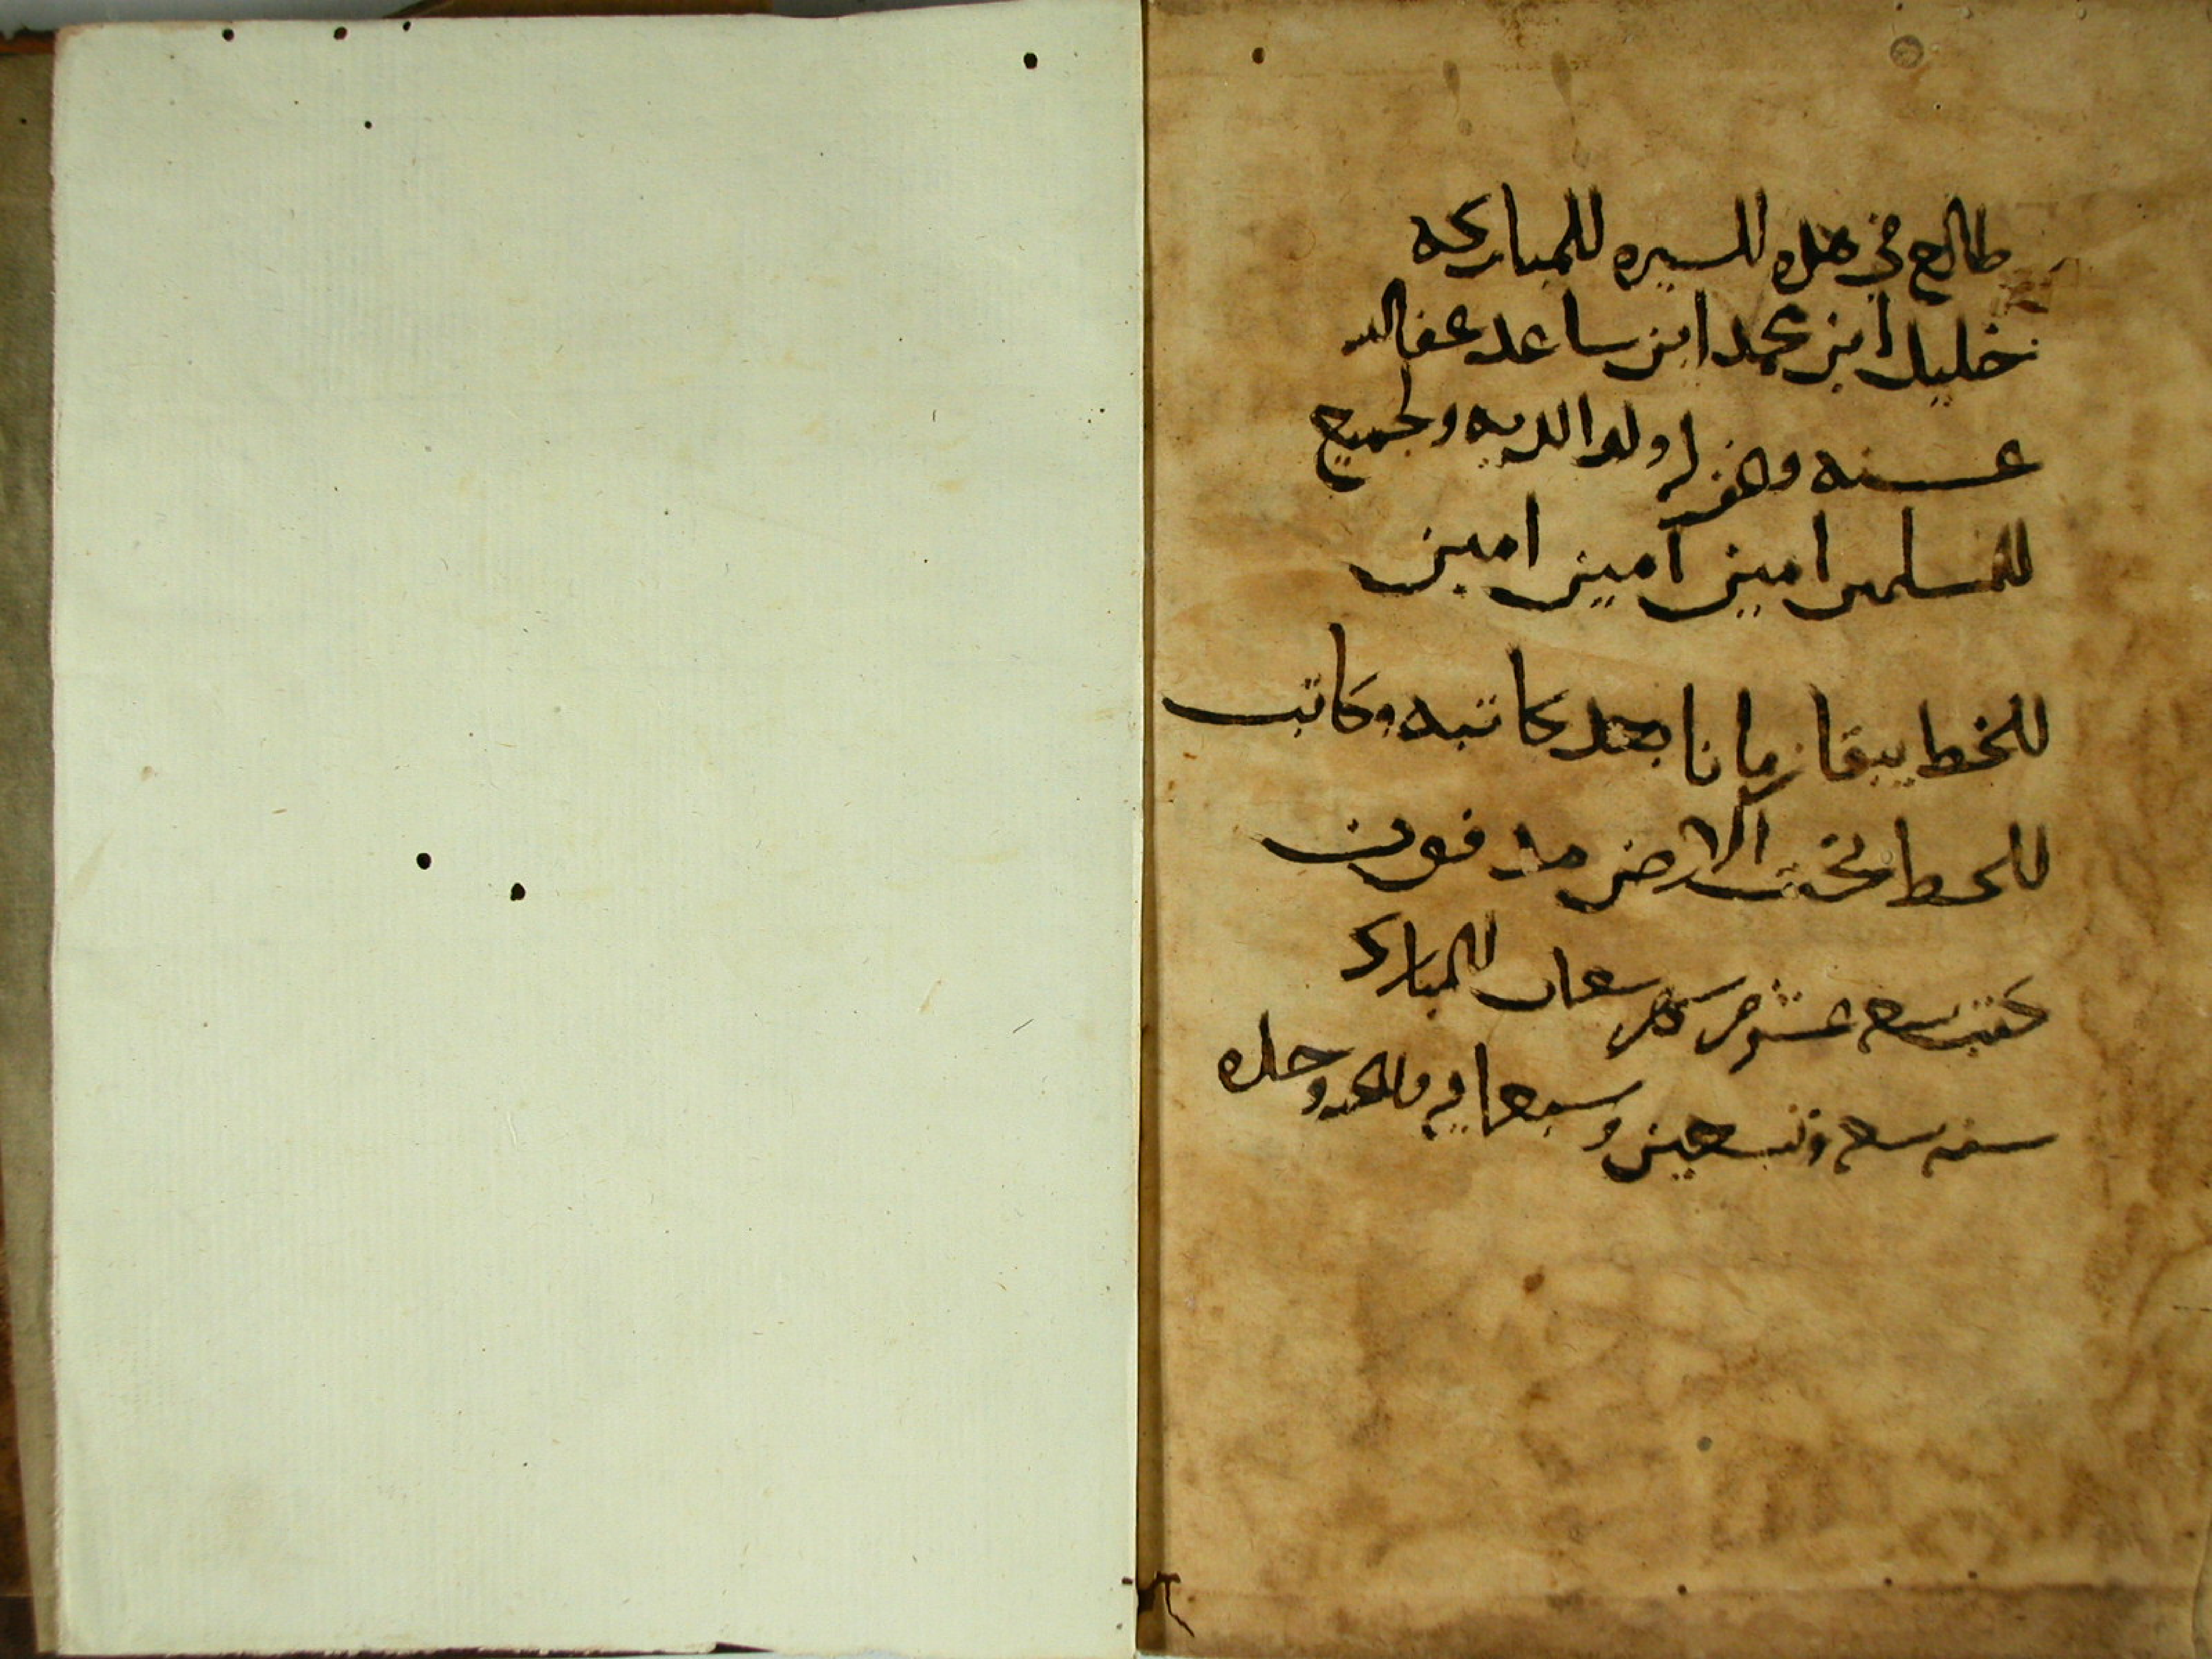 طالع في هذه السيره المباركه
خليل ابن محمد ابن ساعد عفا الله
عنه وغفر له ولوالديه ولجميع
المسلمين امين امين امين
الخط يبقا زمانا بعد كاتبه وكاتب
الخط تحت الارض مدفون
كتب عشر من شهر شعبان المبارك
سنه وتسعين وسبعمايه والحمد لله وحده